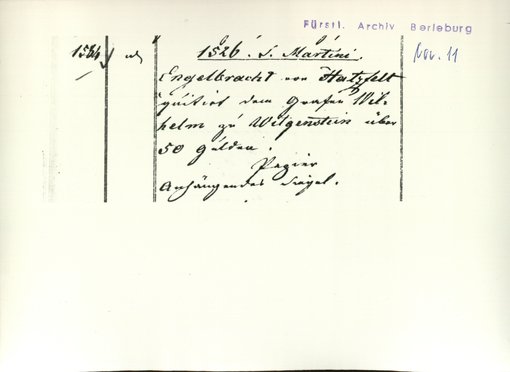 Fürstl. Archiv Berleburg
Nov. 11
1584
1526. S. Martini.
Engelbracht von Hatzfelt
quitirt dem Grafen Wil-
helm zu Witgenstein über
50 Gulden.
Papier
Anhängendes Siegel.